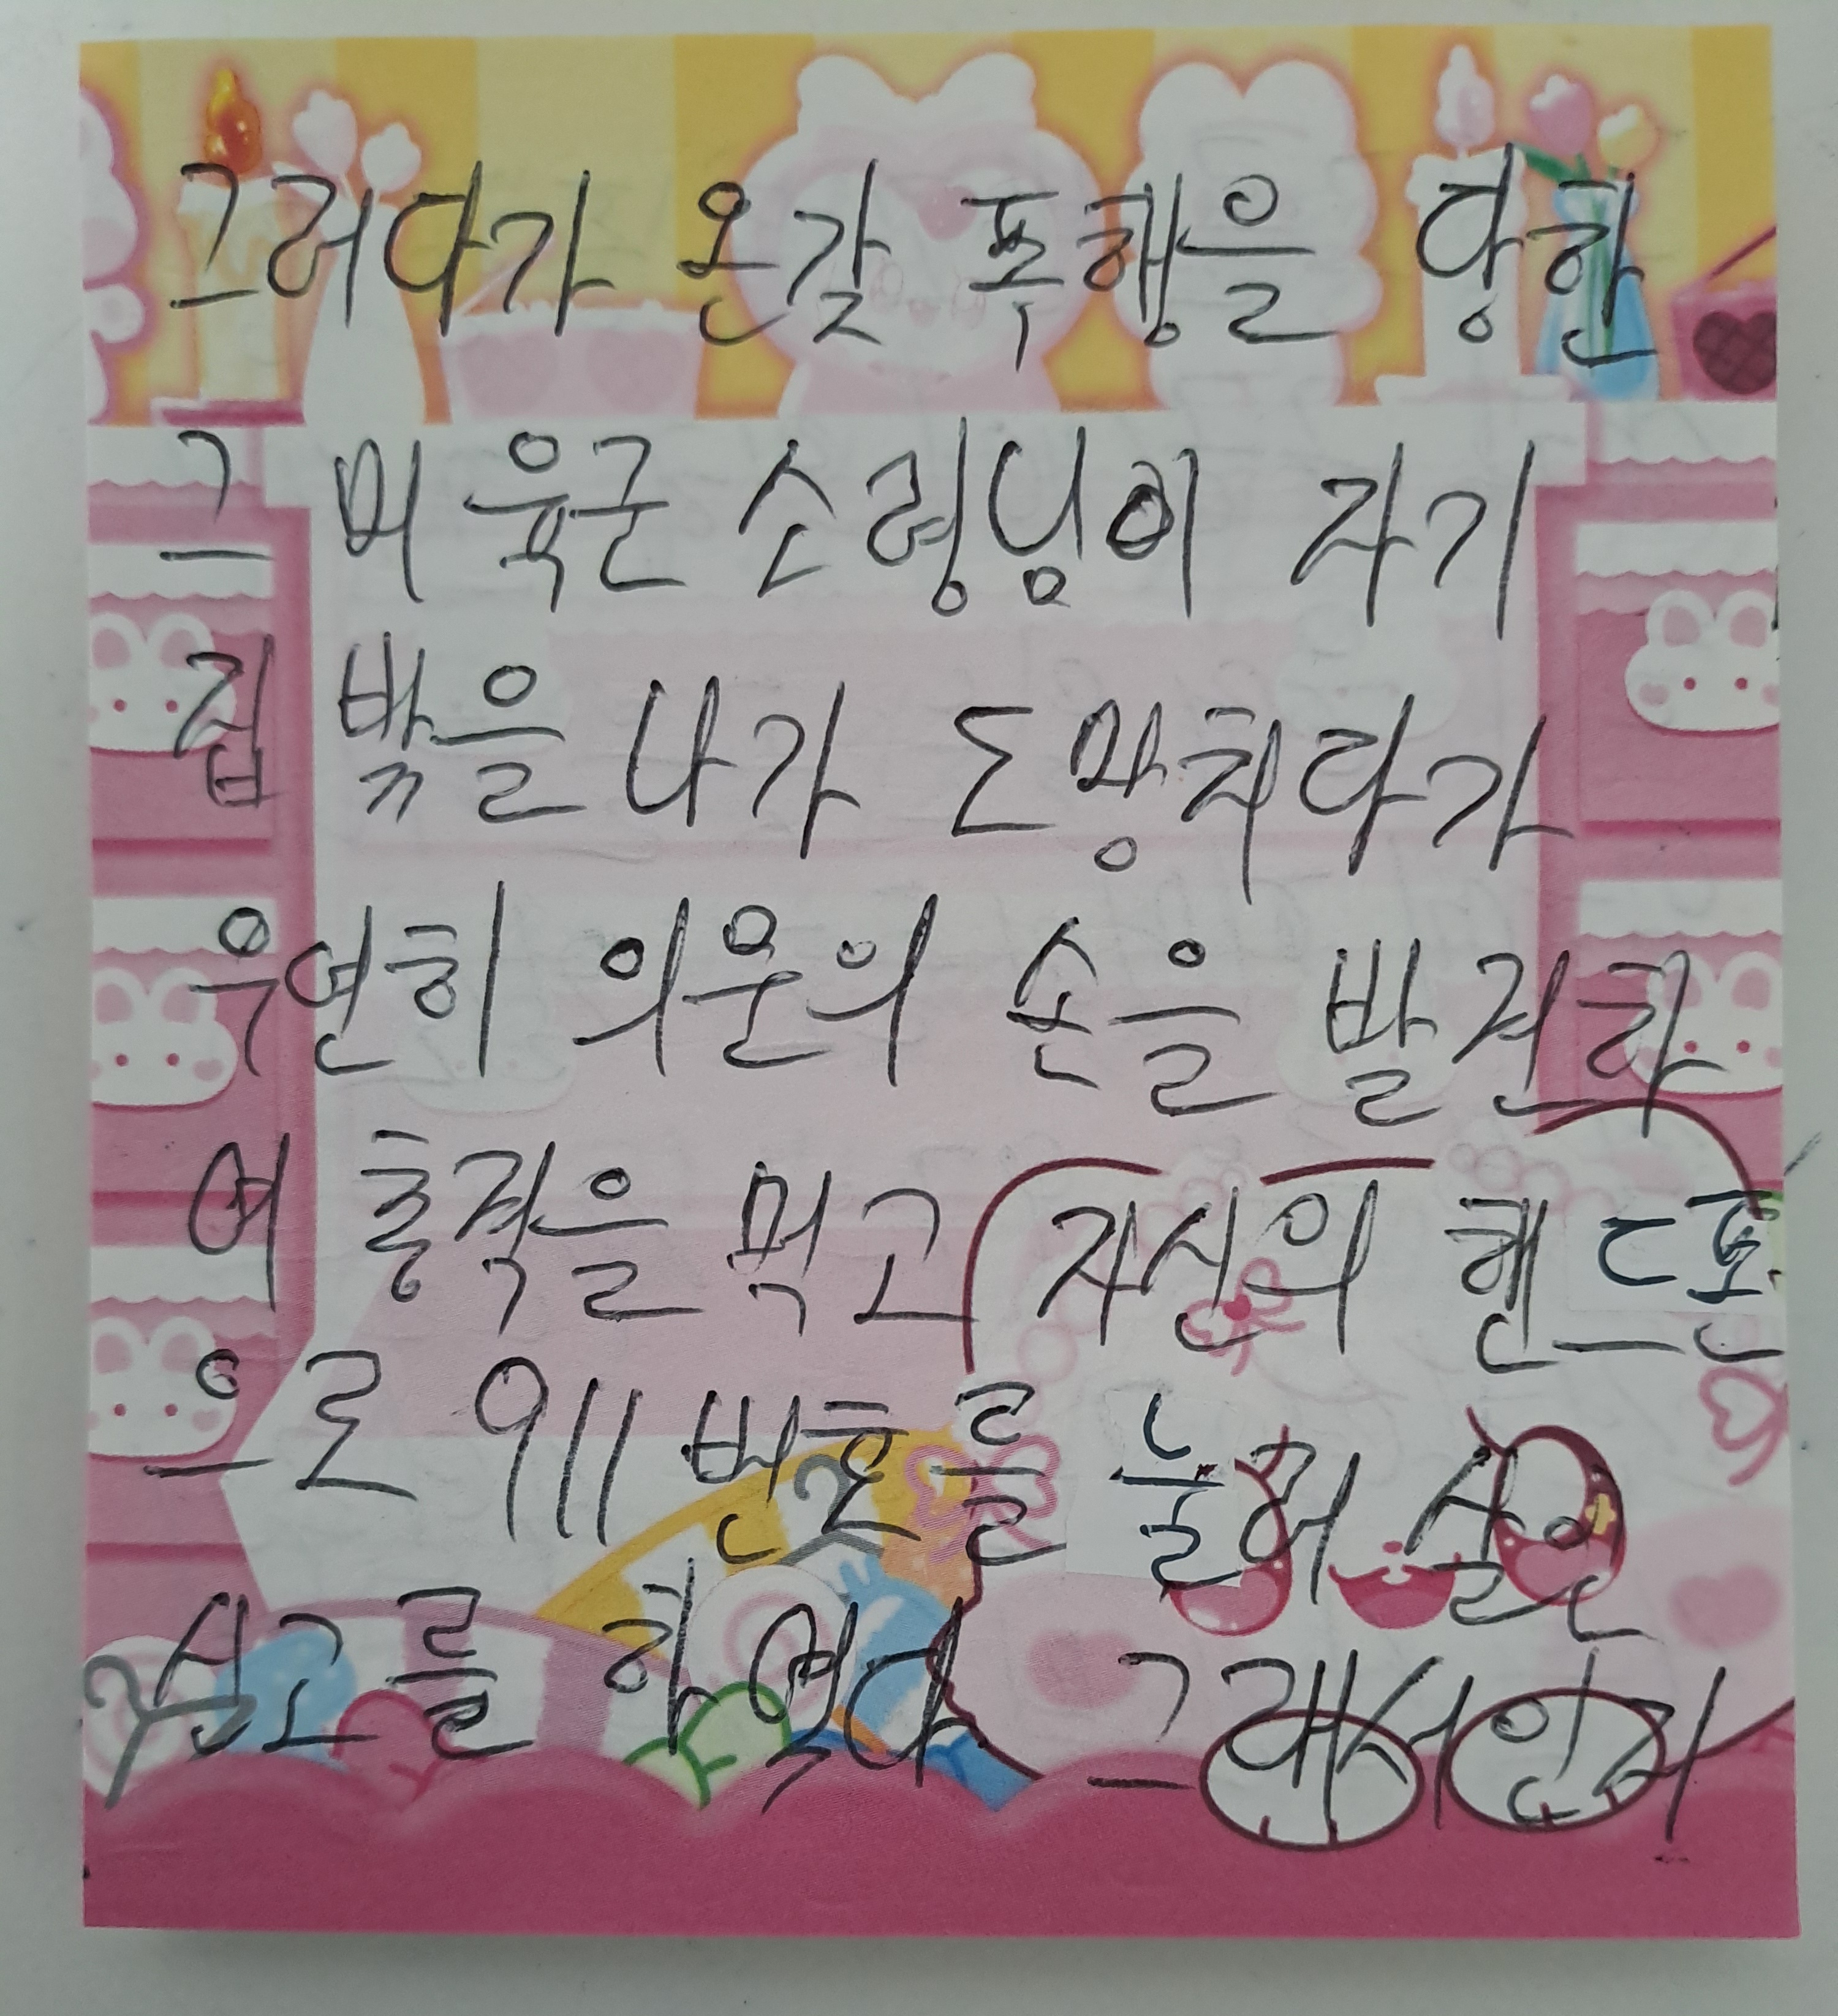 그러다가 온갖 푹행을 당한
그 미 육군 소령님이 자기
집 밖을 나가 도망치다가
우연히 의문의 손을 발견하
여 충격을 먹고 자신의 핸드폰
으로 911 번호를 눌러 살인
신고를 하였다 그래서인지